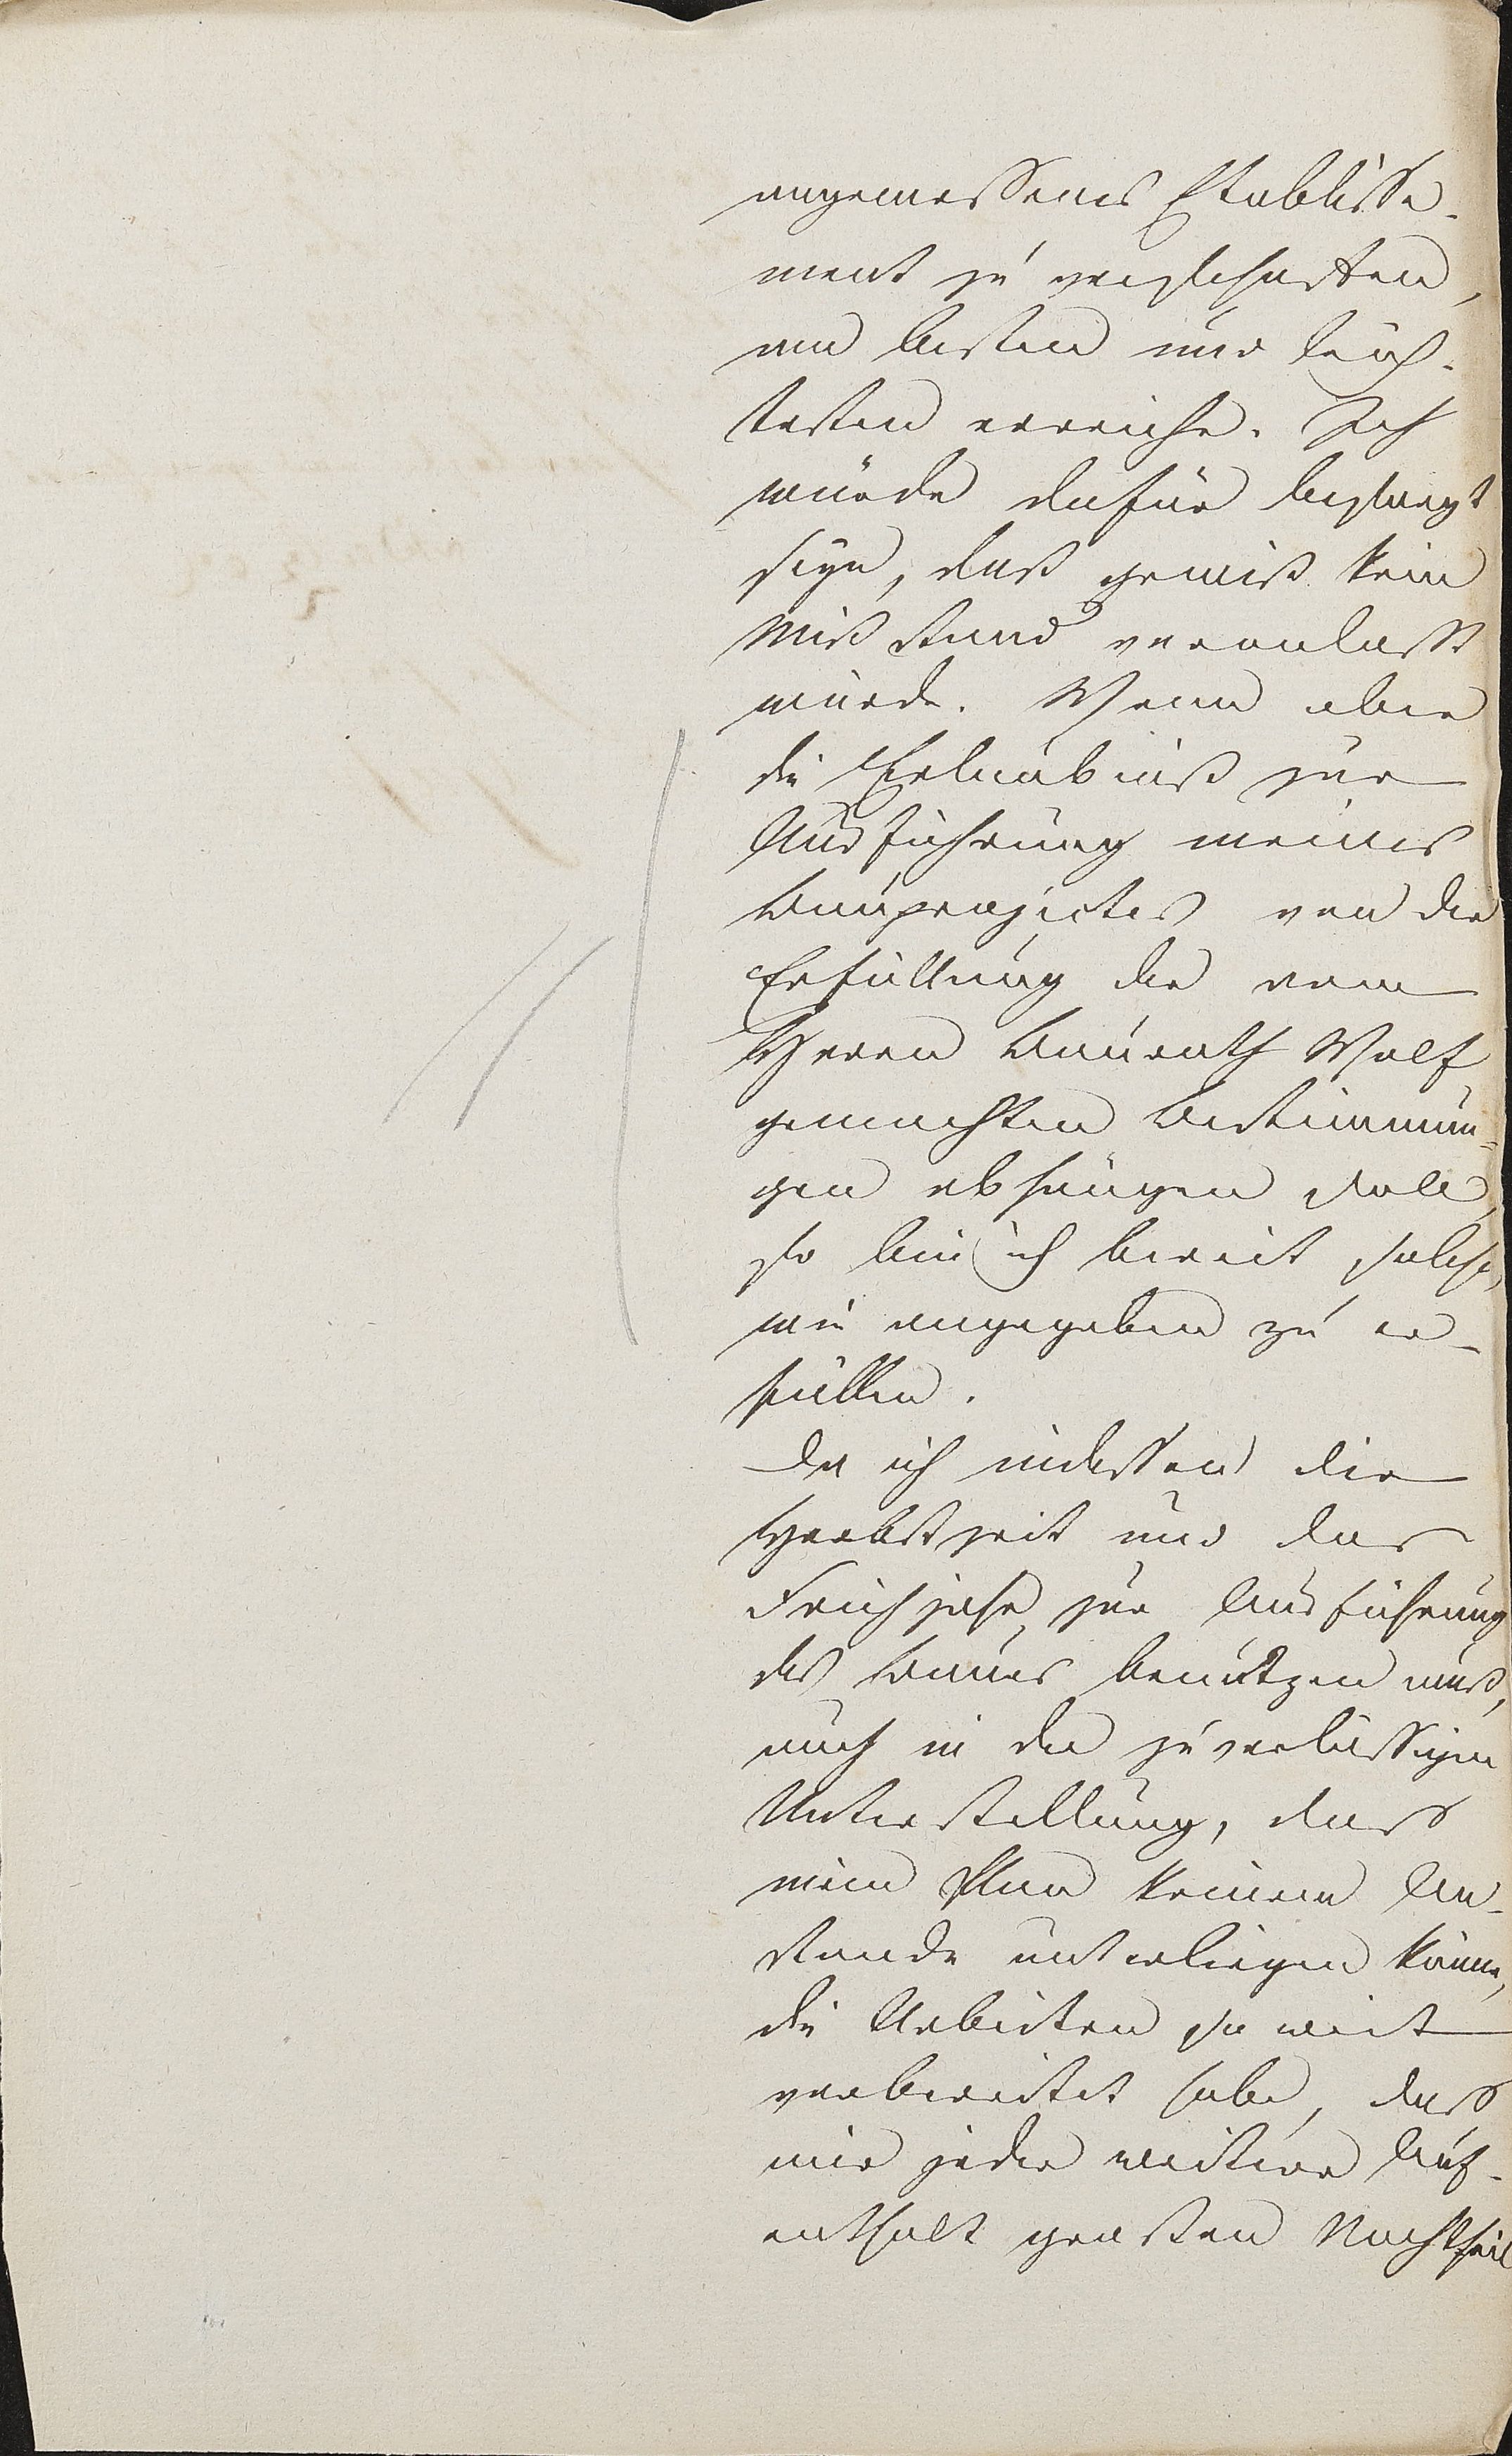 angemessenes Etablisse-
ment zu verschaffen,
am besten und leich-
testen erreiche. Ich
würde dafür besorgt
seyn, daß gewiß kein
Mißstand veranlaßt
würde. Wenn aber
die Erlaubniß zur
Ausführung meines
Bauprojectes von der
Erfüllung der vom
Herrn Baurath Wolf
gemachten Bestimmun=
gen abhängen soll,
so bin ich bereit solche,
wie angegeben zu er-
füllen.
Da ich indessen die
Herbstzeit und das
Frühjahr zur Ausführung
des Baues benützen muß,
auch in der zuverlässigen
Unterstellung, dass
mein Plan keinem An-
stande unterliegen könne,
die Arbeiten so weit
vorbereitet habe, dass
mir jeder weitere Auf-
enthalt großen Nachtheil